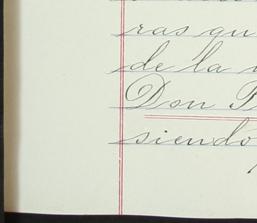 ras qu
de la
Don
siendo